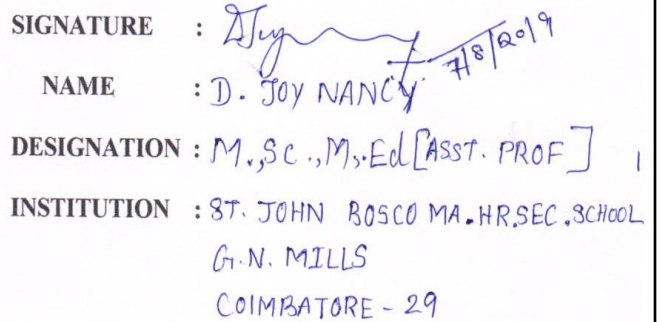 SIGNATURE : DJoy 7/8/2019
NAME : D. JOY NANCY
DESIGNATION : M.,SC.,M,.Ed [ASST. PROF]
INSTITUTION : ST. JOHN BOSCO MA.HR.SEC.SCHOOL
G.N. MILLS
COIMBATORE - 29